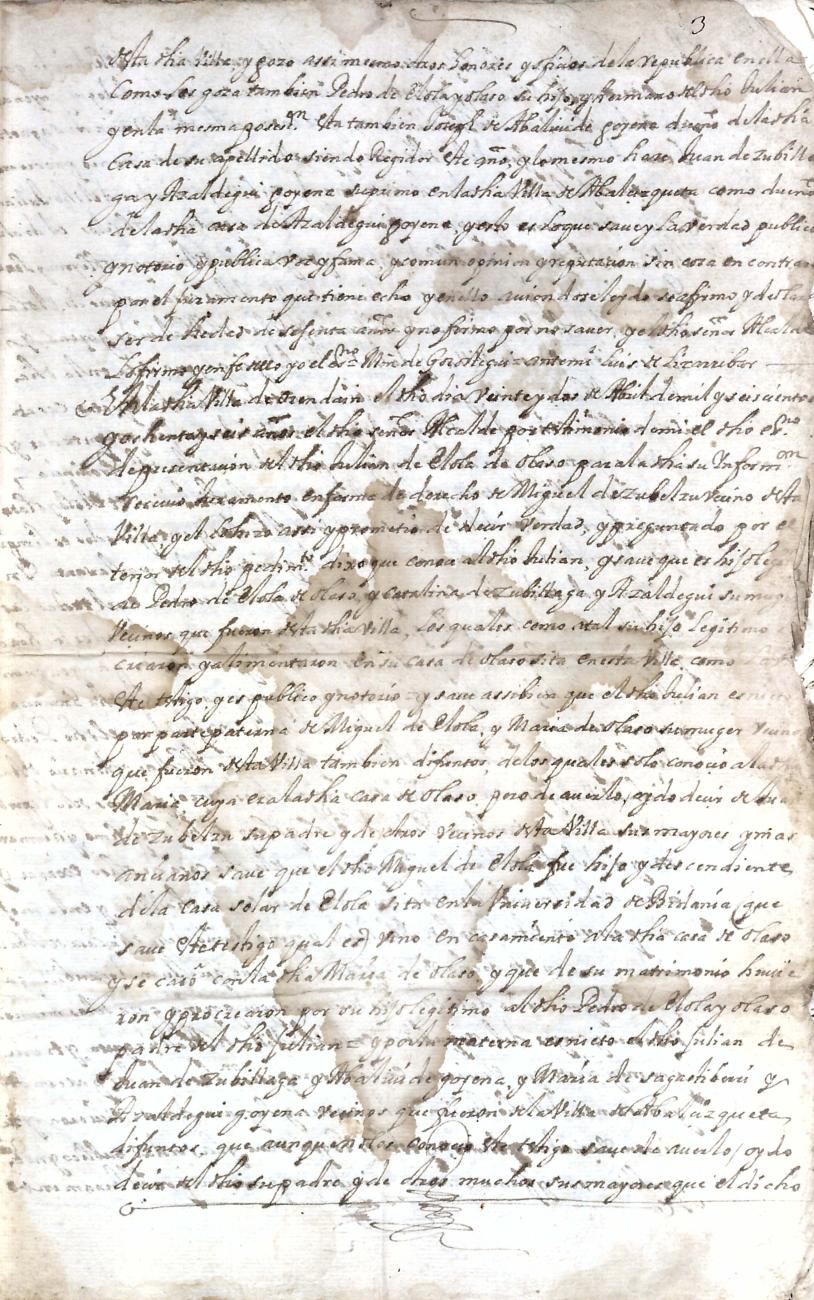 3
desta dha Villa, y gozo assi mesmo otros honores y ofiçios de la republica en ella
Como los goza tambien Pedro de Elola y olaso su hijo, y hermano del dho Julian
y en la mesma poses.on esta tambien Joseph de Abaliside goyena dueño de la dha
Casa de su apellido siendo Regidor este año, y lo mesmo haze Juan de Zubilla
ga y Azaldegui goyena su primo en la dha Villa de Abalcizqueta como dueño
de la dha casa de Azaldegui goyena, y esto es lo que save y la verdad publico
y notorio y publica voz y fama, y comun opinion y reputaçion sin cosa en contrario
por el juramento que tiene echo y en ello aviendosele leydo se afirmo y declaro
ser de hedad de sesenta años y no firmo por no saver, y el dho señor Alcalde
lo firmo y en fe dello yo el esno Min de Goroztegui = ante mi Luis de Lizaribar
En la dha Villa de orendain el dho dia veinte y dos de Abril de mil y seiscientos
y ochenta y seis años el dho señor Alcalde por testimonio de mi el dho esno
de presentaçion del dho Julian de Elola de olaso para la dha su Inform.on
reçivio juramento en forma de derecho de Miguel de Zubelzu veçino desta
Villa y el lo hizo assi y prometio de deçir verdad, y preguntado por el
tenor del dho pedim.to dixo que conoçe al dho Julian, y save que es hijo legi
de Pedro de Elola de olaso, y Catalina de Zubillaga y Azaldegui su muger
Veçinos que fueron desta dha Villa, los quales como a tal su hijo legitimo
criaron y alimentaron en su casa de olaso sita en esta Villa, como
este testigo y es publico y notorio = y save assibien que el dho Julian es nieto
por parte paterna de Miguel de Elola, y Maria de olaso su muger veçinos
que fueron desta Villa tambien difuntos, de los quales solo conoçio a la dha
Maria cuya era la dha casa de olaso, pero de averlo oydo deçir de
de Zubelzu su padre y de otros veçinos desta Villa sus mayores y mas
ançianos save que el dho Miguel de Elola fue hijo y desçendiente
de la casa solar de Elola sita en la Universidad de Bidania (que
save este testigo qual es) vino en casamiento a la dha casa de olaso
y se casó con la dha Maria de olaso, y que de su matrimonio huvie
ron y procrearon por su hijo legitimo al dho Pedro de Elola y olaso
padre del dho Julian = y por la materna es nieto el dho Julian de
Juan de Zubillaga y Abaliside goyena, y Maria de sagastiberri y
Azaldegui goyena veçinos que fueron de la Villa de Abalcizqueta
difuntos, que aunque no los conoçio este testigo save de averlo oydo
deçir del dho su padre y de otros muchos sus mayores que el dicho